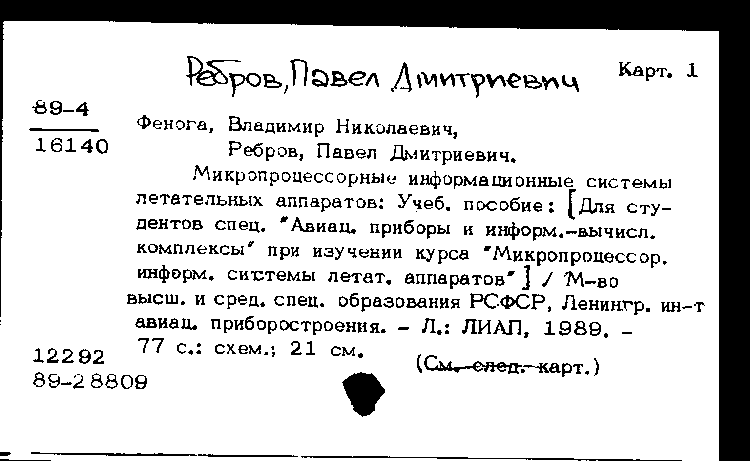 Ребров, Павел Дмитриевич
Карт. 1
89-4
16140
Фенога, Владимир Николаевич,
Ребров, Павел Дмитриевич.
Микропроцессорные информационные системы
летательных аппаратов: Учеб. пособие: [Для сту-
дентов спец. "Авиац. приборы и информ.-вычисл.
комплексы" при изучении курса "Микропроцессор.
информ. системы летат. аппаратов"] / М-во
высш. и сред. спец. образования РСФСР, Ленингр. ин-т
авиац. приборостроения. - Л.: ЛИАП, 1989. -
77 с.: схем.; 21 см.
(См. след. карт.)
12292
89-28809